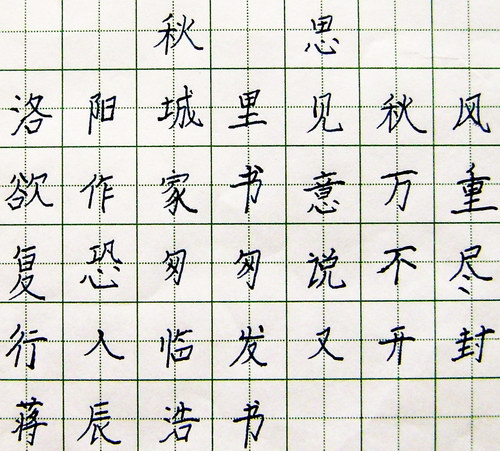 秋思
洛阳城里见秋风
欲作家书意万重
复恐匆匆说不尽
行人临发又开封
蒋辰浩书